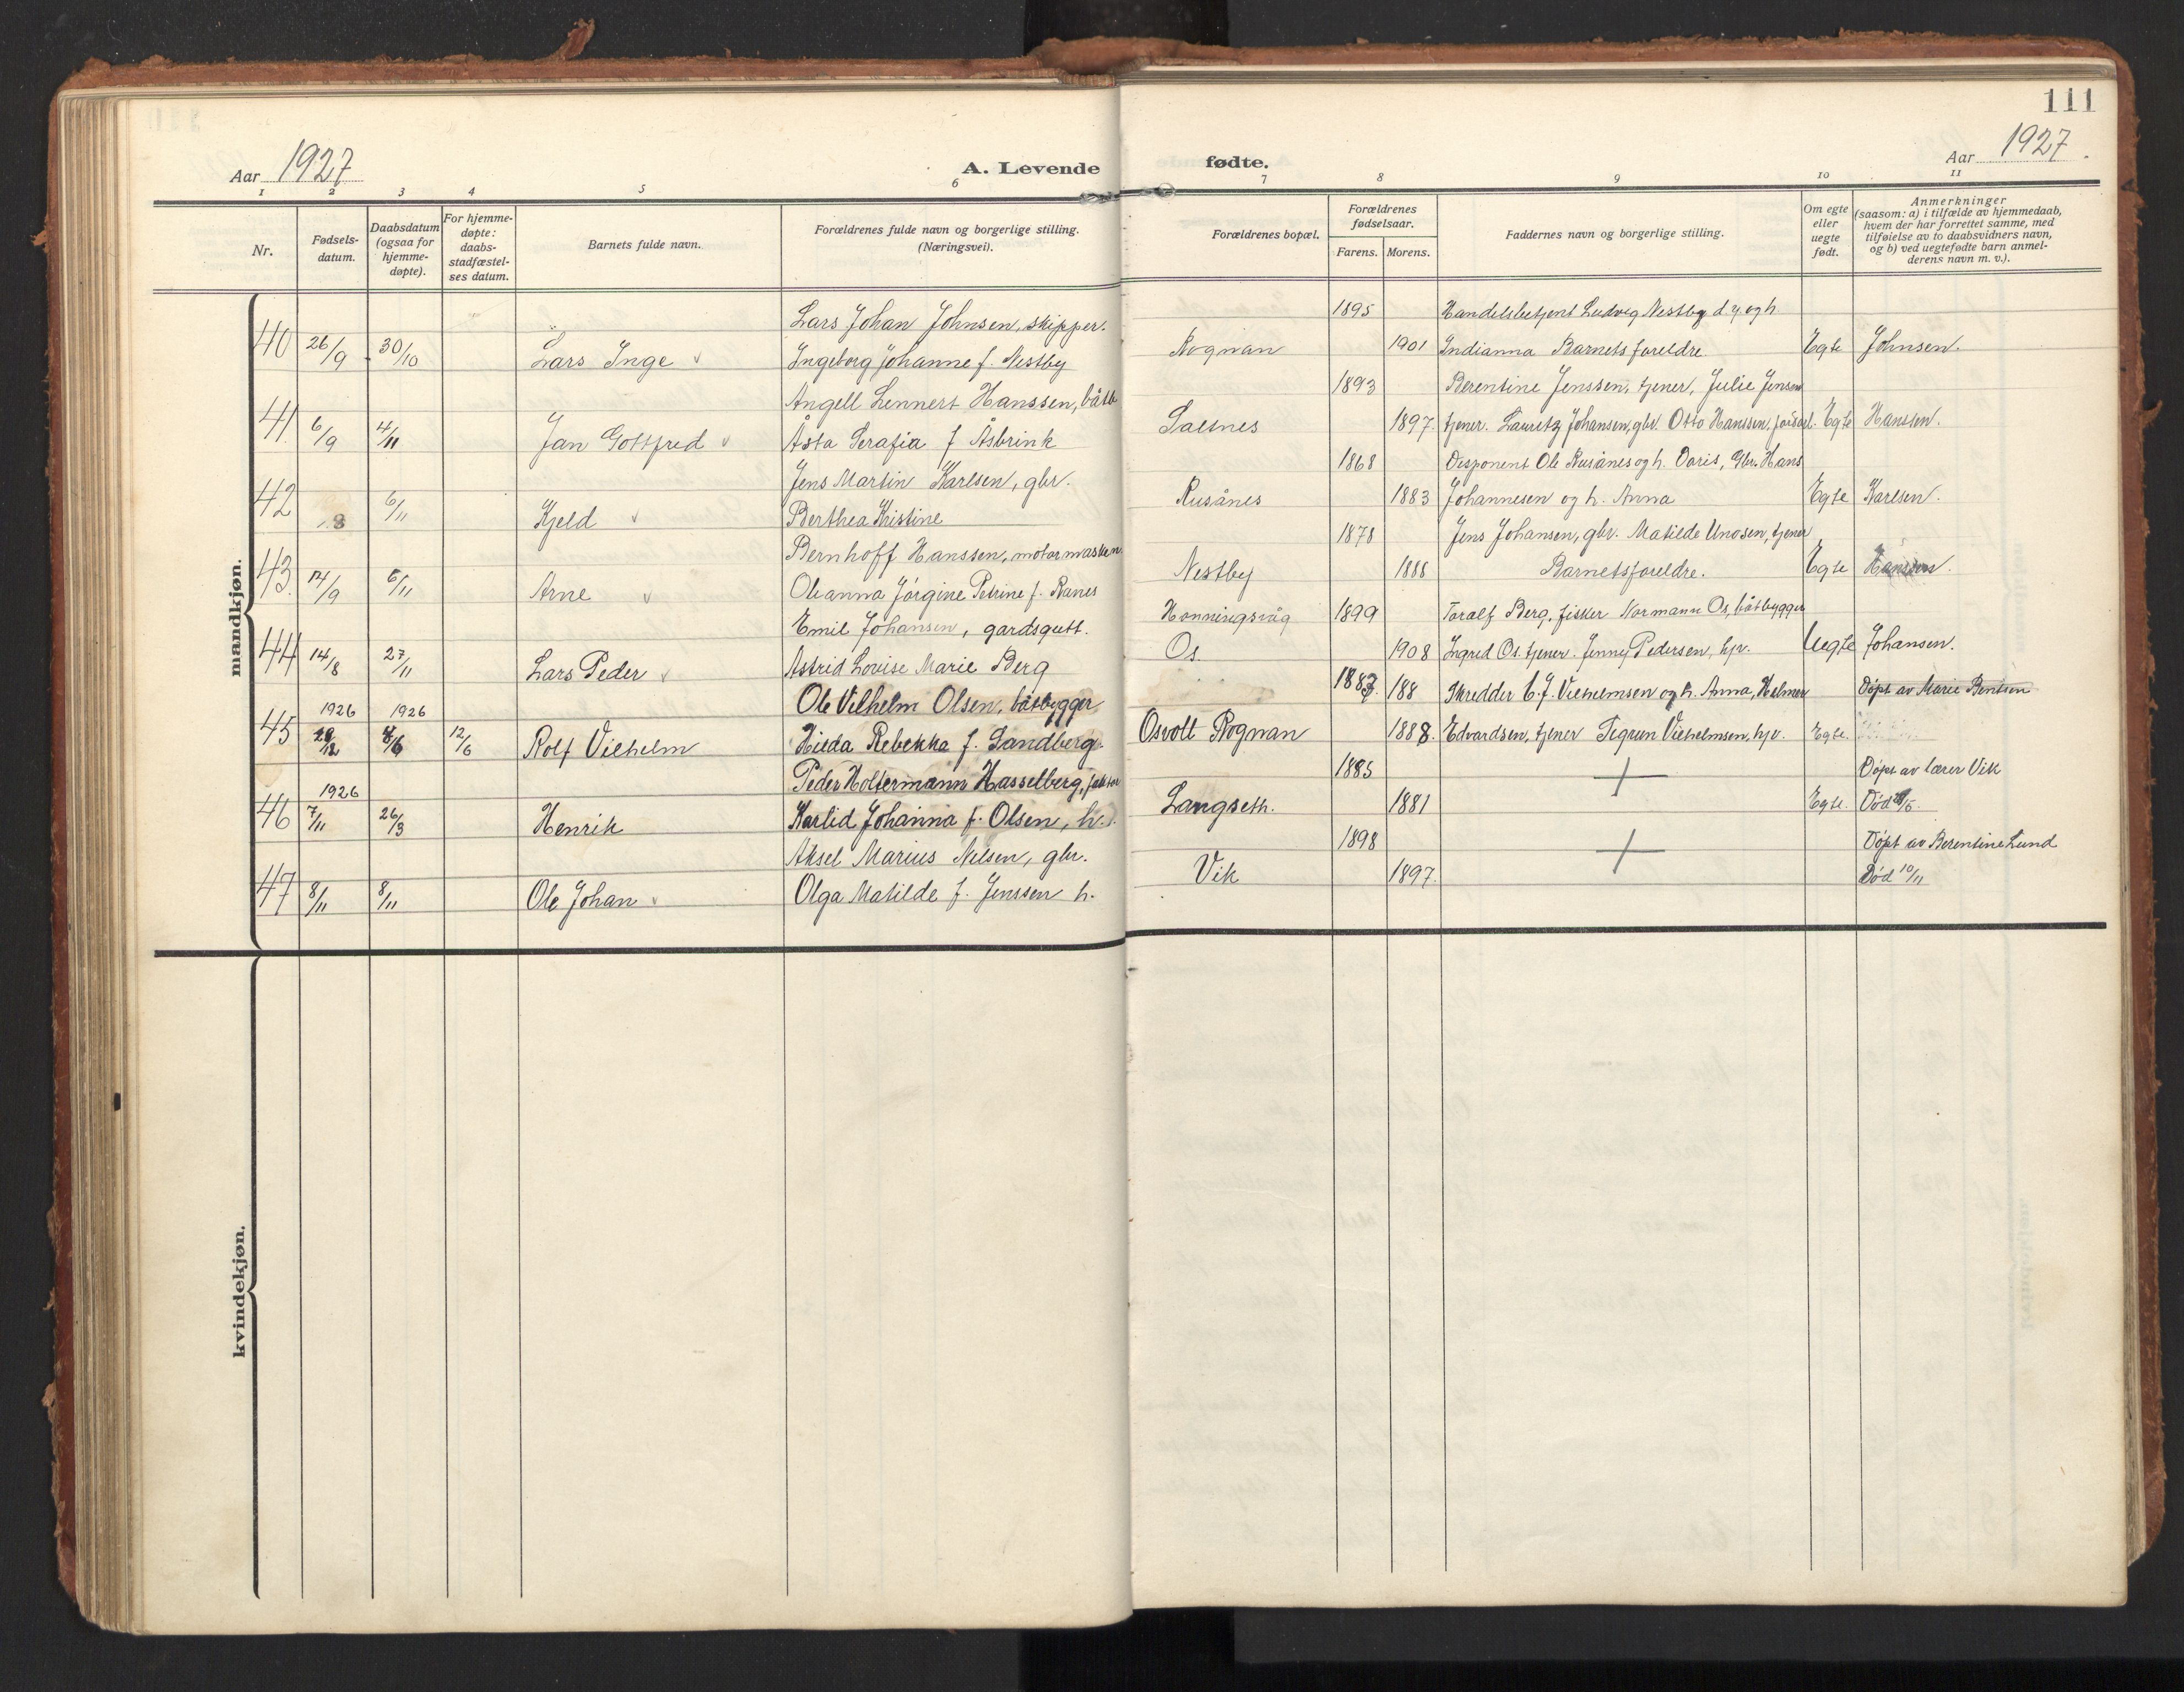 111
Aar 1927
A. Levende
fødte.
Aar 1927.
1 2 3 4 5 6 7 8 9 10 11
Nr.
Fødsels-
datum.
Daabsdatum
(ogsaa for
hjemme-
døpte).
For hjemme-
døpte:
daabs-
stadfæstel-
ses datum.
Barnets fulde navn.
Forældrenes fulde navn og borgerlige stilling.
(Næringsvei).
Forældrenes bopæl.
Forældrenes
fødselsaar.
Farens. Morens.
Faddernes navn og borgerlige stilling.
Om egte
eller
uegte
født.
Anmerkninger
(saasom: a) i tilfælde av hjemmedaab,
hvem der har forrettet samme, med
tilføielse av to daabsvidners navn,
og b) ved uegtefødte barn anmel-
derens navn m. v.).
mandkjøn.
Lars Johan Johnsen, skipper. 1895 Handelsbetjent Ludvig Nestby d y og h.
40 26/9 30/10 Lars Inge Ingeborg Johanne f. Nestby Rognan 1901 Indianna Barnets foreldre. Egte Johnsen.
Angell Lennert Hanssen, båtb 1893 Berentine Jenssen, tjener, Julie Jensen
41. 6/9 4/11 Jan Gottfred Åsta Serafia f Åsbrink Saltnes 1897. tjener. Lauritz Johansen, gbr. Otto Hanssen, Egte Hanssen.
Jens Martin Karlsen, gbr. 1868 Disponent Ole Rusånes og h. Doris, Gbr. Hans
42 8 6/11 Kjeld Berthea Kristine Rusånes 1883 Johannesen og h. Anna Egte Karlsen.
Bernhoff Hanssen, motormaskin. 1878 Jens Johansen, gbr. Matilde Unosen, tjener
43. 14/9 6/11 Arne Oleanna Jørgine Petrine f. Ranes Nestby 1888 Barnets foreldre. Egte Hanssen.
Emil Johansen, gardsgutt. Honningsvåg 1899 Toralf Berg, fisker Normann Os, båtbygger
44 14/8 27/11 Lars Peder Astrid Lovise Marie Berg Os 1908 Ingrid Os. tjener. Jenny Pedersen, hjv. Uegte Johansen.
Ole Vilhelm Olsen, båtbygger 1883. 188 Skredder C. J. Vilhelmsen og h. Anna, Helmer Døpt av Marie Bentsen
1926 1926
45 12/6 Rolf Vilhelm Hilda Rebekka f. Sandberg. Osvolt Rognan 1888. Edvardsen, tjener Sigrun Vilhelmsen, hjv. Egte.
Peder Holtermann Hasselberg, 1885 Døpt av lærer Vik
1926
46 7/11 26/3 Henrik Karlid Johanna f. Olsen, h. Langseth. 1881 Egte. Død
Aksel Marius Nilsen, gbr. 1898 Døpt av Berentine Lund
47 8/11 8/11 Ole Johan Olga Matilde f. Jenssen h. Vik 1897. Død 10/11
kvindekjøn.